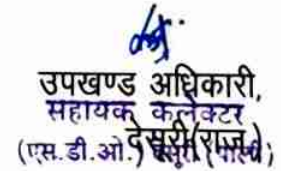 उपखण्ड अधिकारी,
सहायक कलेक्टर
देसूरी (राज.)
(एस.डी.ओ.) देसूरी (पाली)